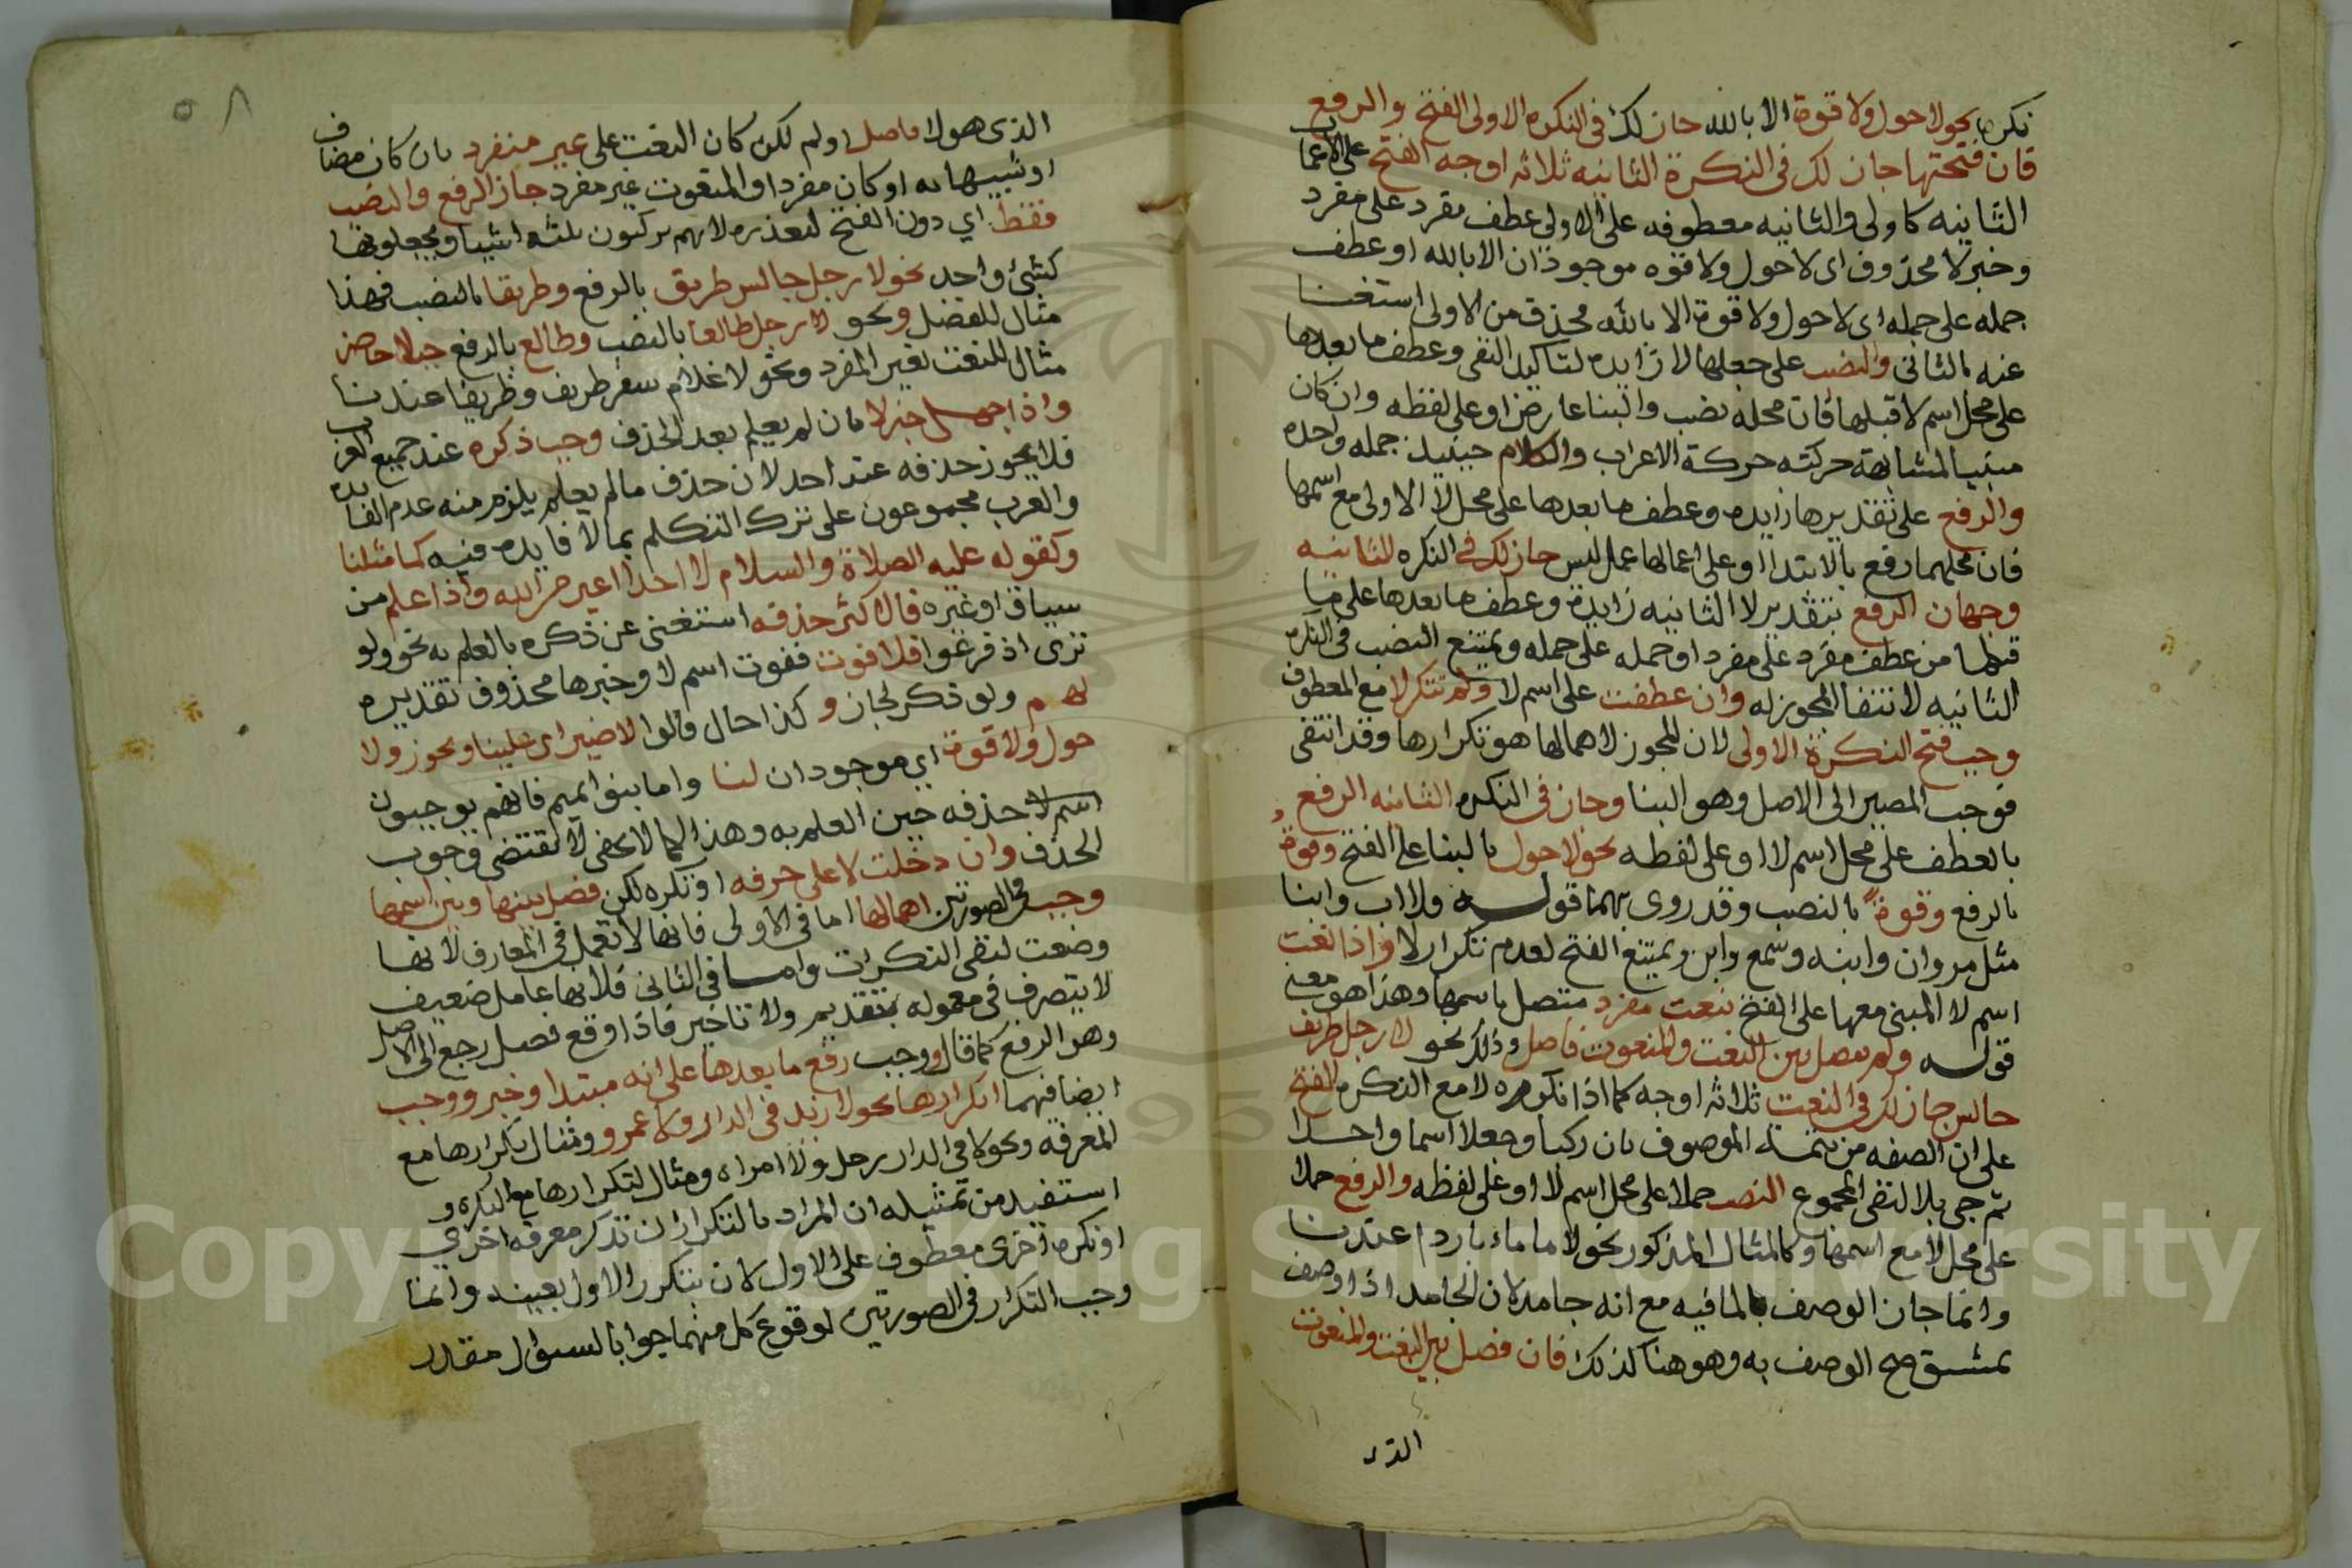 نكره نحو لا حول ولا قوة الا بالله جاز لك في النكره الاولى الفتح والرفع
فان فتحتها جاز لك في النكرة الثانيه ثلاثه اوجه الفتح على الاعمال
الثانيه كاولى والثانيه معطوفه على الاولى عطف مفرد على مفرد
وخبر لا محذوف اى لا حول ولا قوه موجودان الا بالله او عطف
جمله على جمله اى لا حول ولا قوة الا بالله محذف من الاولى استغنا
عنه بالثانى والنصب على جعلها لا زايده لتاكيد النفى وعطف ما بعدها
على محل اسم لا قبلها فان محله نصب والبنا عارض او على لفظه وان كان
مبنيا لمشابهة حركته حركة الاعراب والكلام حينيذ جمله واحده
والرفع على تقديرها زايده وعطف ما بعدها على محل لا الاولى مع اسمها
فان محلهما رفع بالابتدا او على اعمالها عمل ليس جاز لك في النكره الثانيه
وجهان الرفع بتقدير لا الثانيه زايدة وعطف ما بعدها على ما
قبلها من عطف مفرد على مفرد او جمله على جمله ويمتنع النصب فى النكره
الثانيه لانتفا المجوز له وان عطفت على اسم لا ولم تتكر لا مع المعطوف
وجب فتح النكرة الاولى لان المجوز لاهمالها هو تكرارها وقد انتفى
فوجب المصير الى الاصل وهو البنا وجاز فى النكره الثانيه الرفع و
بالعطف على محل اسم لا او على لفظه نحو لا حول بالبنا على الفتح وقوة
بالرفع وقوةً بالنصب وقد روى بهما قوله فلا اب وابنا
مثل مروان وابنه وسمع وابن ويمتنع الفتح لعدم تكرار لا واذا نعت
اسم لا المبنى معها على الفتح بنعت مفرد متصل باسمها وهذا هو معنى
قوله ولم يفصل بين النعت والمنعوت فاصل وذلك نحو لا رجل ظريف
جالس جاز لك فى النعت ثلاثه اوجه كما اذا تكرره لا مع النكره الفتح
على ان الصفه من تتمة الموصوف بان ركبا وجعلا اسما واحدا
ثم جى بلا لنفى المجموع النصب حملا على محل اسم لا او على لفظه والرفع حملا
على محل لا مع اسمها وكالمثال المذكور نحو لا ما ماء باردا عندنا
وانما جاز الوصف بالما فيه مع انه جامد لان الجامد اذا وصف
بمشتق صح الوصف به وهو هنا كذلك فان فصل بين النعت والمنعوت
الذى هو لا فاصل او لم لكن كان النعت على غير منفرد بان كان مضاف
او شبيها به او كان مفردا والمنعوت غير مفرد جاز الرفع والنصب
فقط اي دون الفتح لتعذره لانهم يركبون ثلثه اشيا ويجعلونها
كشئ واحد نحو لا رجل جالس ظريق بالرفع وظريقا بالنصب فهذا
مثال للفصل ونحو لا رجل طالعا بالنصب وطالع بالرفع جبلا حاضر
مثال للنعت بغير المفرد ونحو لا غلام سفر ظريف وظريفا عندنا
واذا جهل خبر لا بان لم يعلم بعد الحذف وجب ذكره عند جميع العرب
فلا يجوز حذفه عند احد لان حذف ما لم يعلم يلزم منه عدم الفايده
والعرب مجموعون على ترك التكلم بما لا فايده فيه كما مثلنا
وكقوله عليه الصلاة والسلام لا احدا اغير من الله واذا علم من
سياق او غيره فالاكثر حذفه استغنى عن ذكره بالعلم به نحو ولو
ترى اذ فزعوا فلا فوت ففوت اسم لا وخبرها محذوف تقديره
لهم ولو ذكر لجاز وكذا حال قالوا لا ضير اى علينا ونحو ولا
حول ولا قوة اي موجودان لنا واما بنوا تميم فانهم يوجبون
اسم لا حذفه حين العلم به وهذا كما لا يخفى لا يقتضى وجوب
الحذف وان دخلت لا على حرفه او نكره لكن فصل بينها وبين اسمها
وجب فى الصورتين اهمالها اما فى الاولى فانها لا تعمل فى المعارف لانها
وضعت لنفى النكرات واما فى الثانى فلانها عامل ضعيف
لا يتصرف فى معموله بتقديم ولا تاخير فاذا وقع فصل رجع الى الاصل
وهو الرفع كما قال ووجب رفع ما بعدها على انه مبتدا وخبر ووجب
ايضا فيهما تكرارها نحو لا زيد فى الدار ولا عمرو ومثال تكرارها مع
المعرفه ونحو لا فى الدار رجل ولا امراه ومثال لتكرارها مع النكره و
استفيد من تمثيله ان المراد بالتكرار ان تذكر معرفه اخرى
او نكره اخرى معطوف على الاول لان يتكرر الاول بعينه وانما
وجب التكرار فى الصورتين لوقوع كل منهما جوابا لسؤال مقدر
٥٨
Copyright © King Saud University
1957